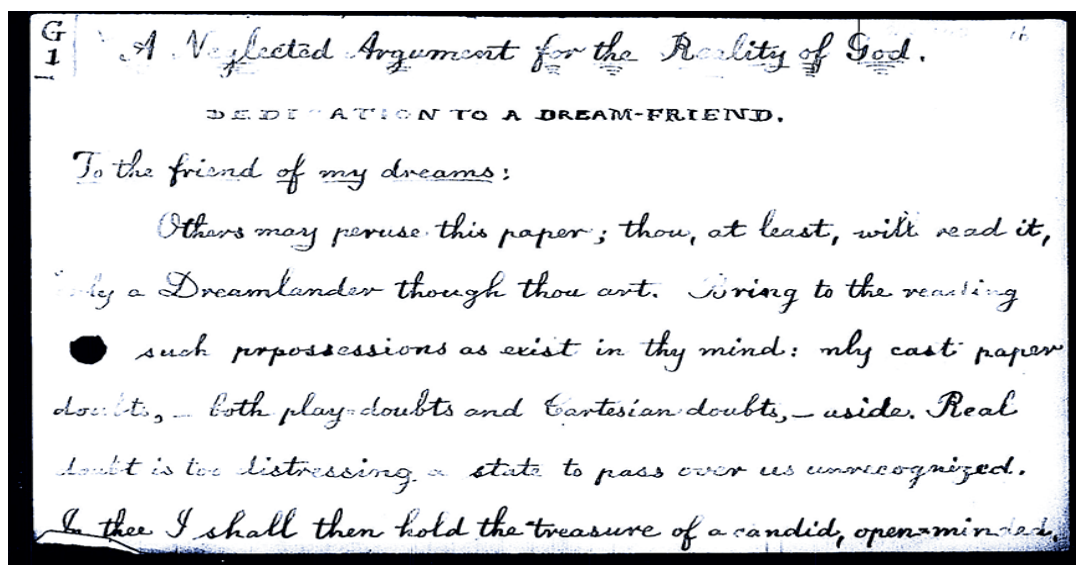 G
1
16
A Neglected Argument for the Reality of God.
DEDICATION TO A DREAM-FRIEND.
To the friend of my dreams:
Others may peruse this paper; thou, at least, wilt read it,
only a Dreamlander though thou art. Bring to the reading
such prpossessions as exist in thy mind: nly cast paper
doubts, – both play-doubts and Cartesian doubts, – aside. Real
doubt is too distressing a state to pass over us unrecognized.
In thee I shall then hold the treasure of a candid, open-minded,